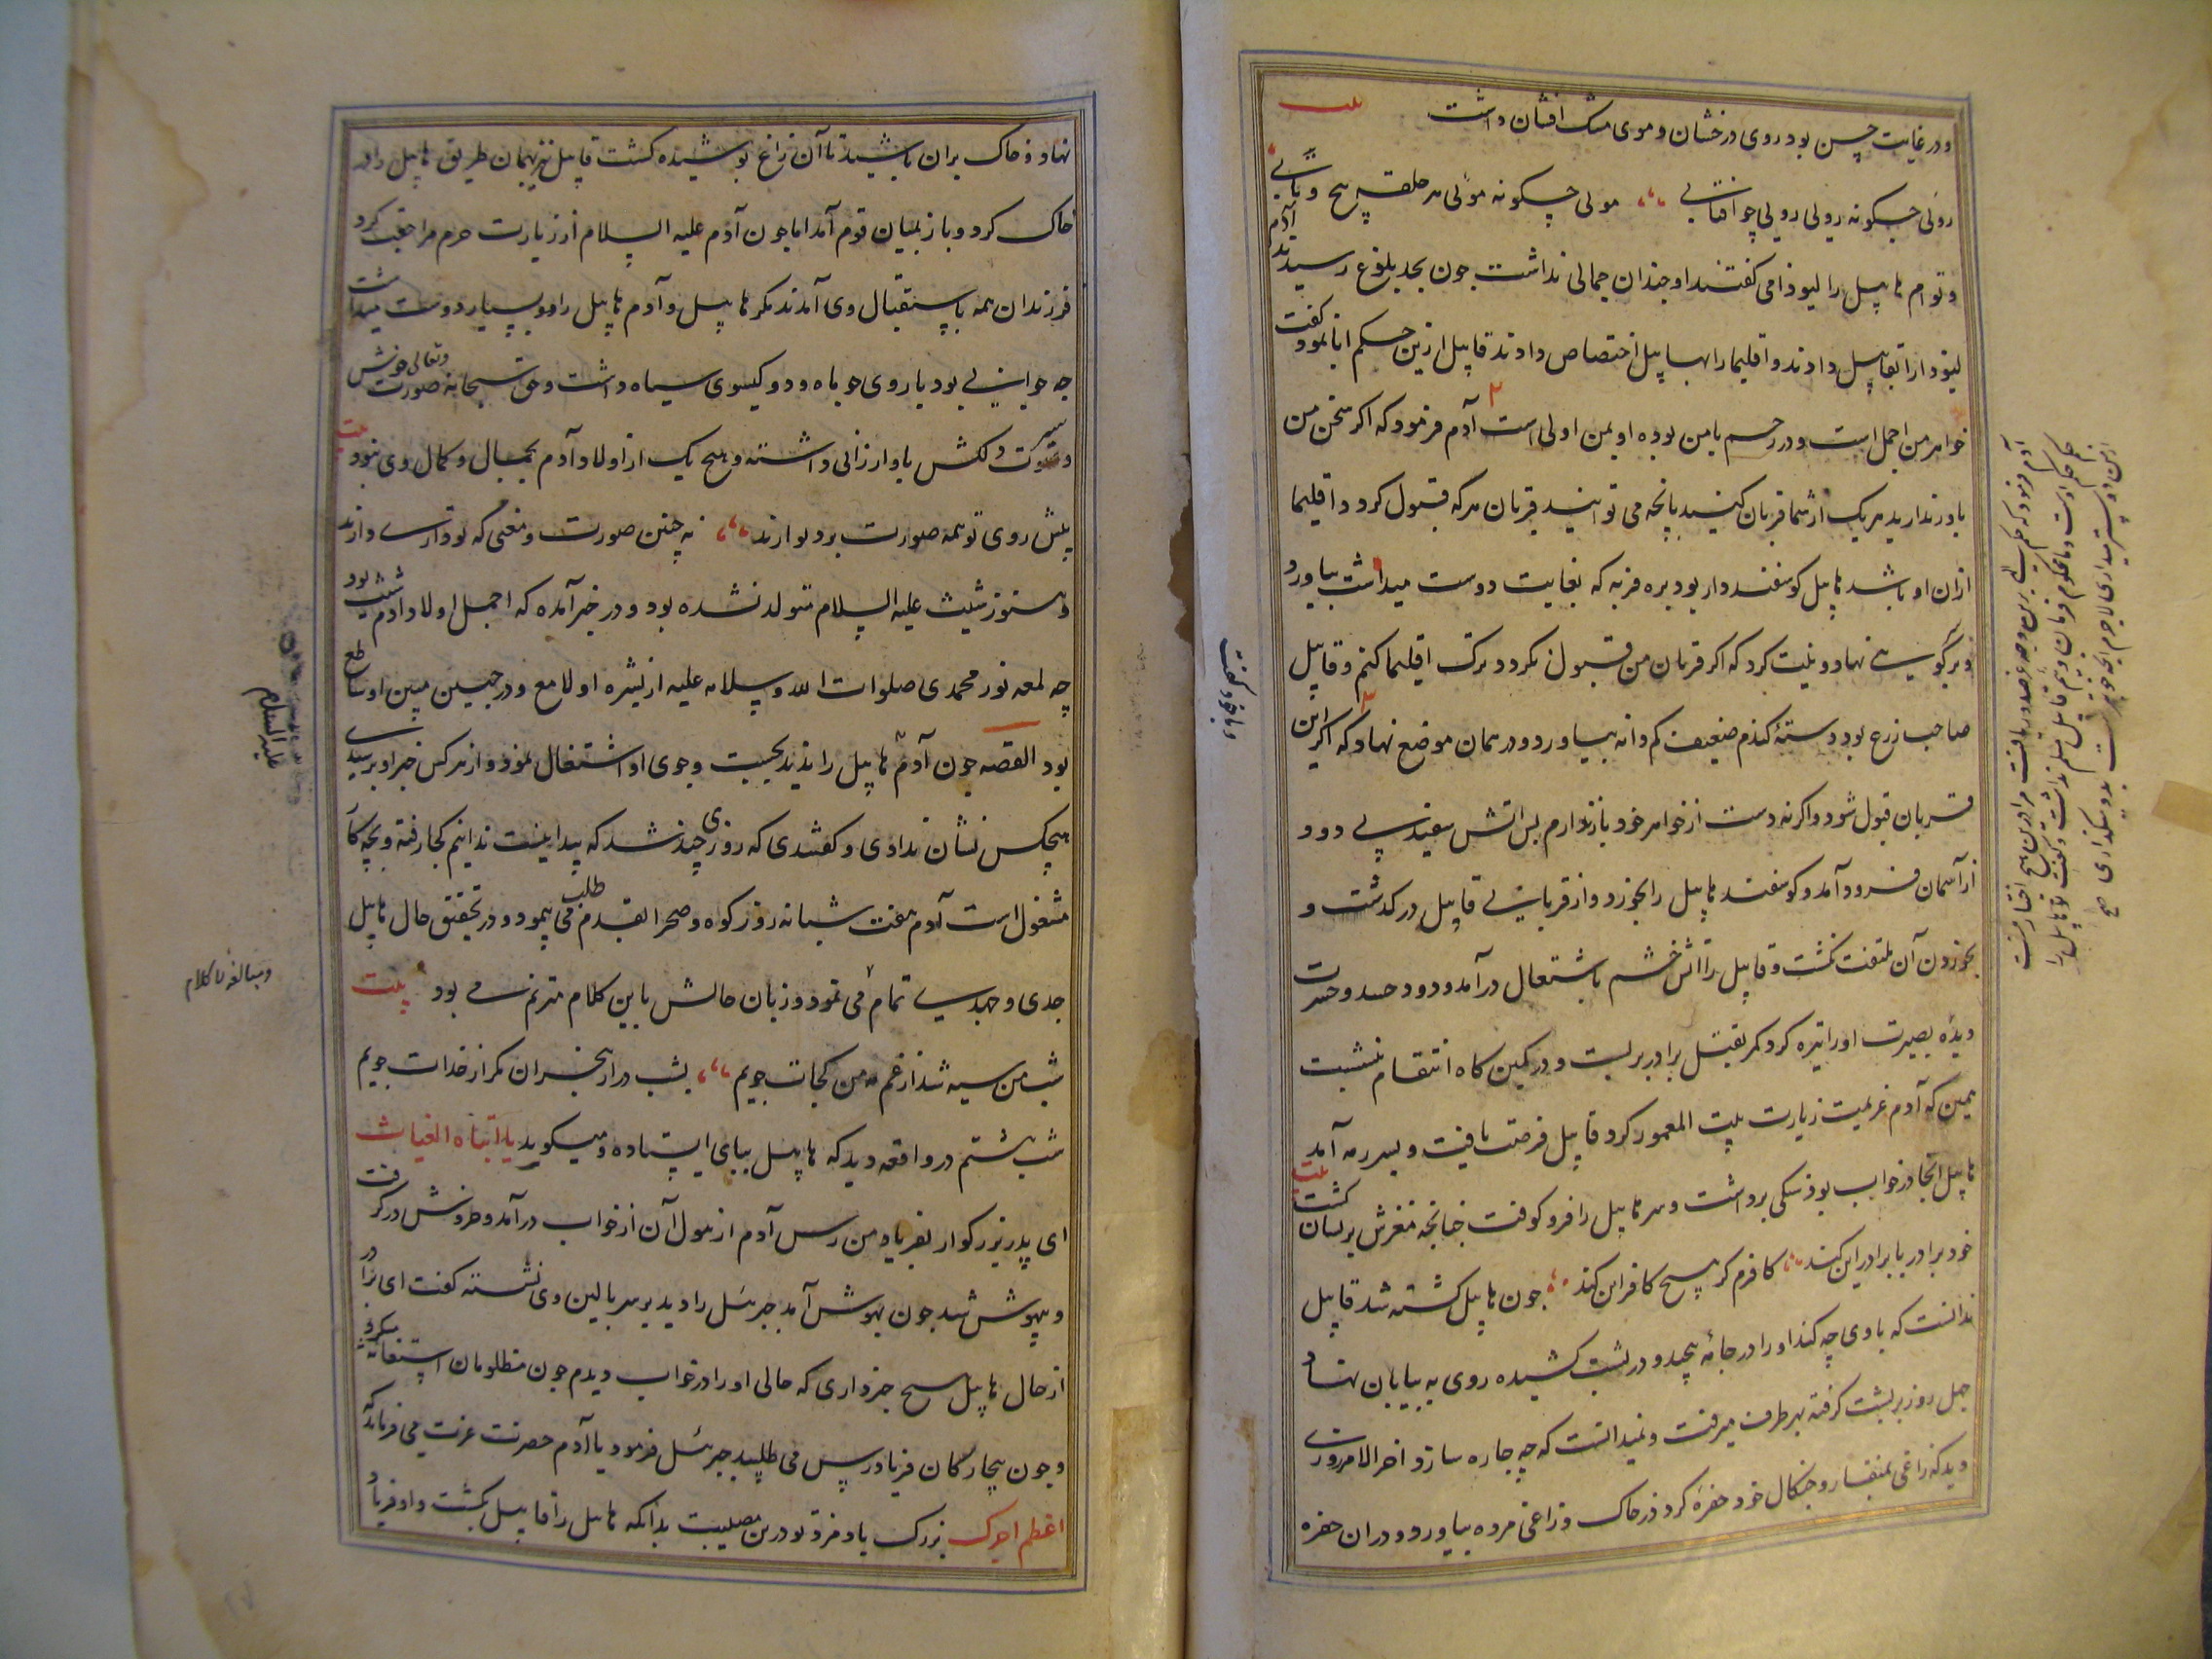 و در غایت حسن بود روی درخشان و موی مشک افشان داشت بیت
روئی چگونه روئی روئی چو آفتابی موئی چگونه موئی هر حلقه پیچ و تابی
و توام هابیل را لیوذا می گفتند او چندان جمالی نداشت چون بحد بلوغ رسیدند آدم
لیوذا را بقابیل دادند و اقلیما را بهابیل اختصاص دادند قابیل ازین حکم ابا نمود گفت
خواهر من اجمل است و در رحم با من بوده او بمن اولی است آدم فرمود که اگر سخن من
باور ندارید هر یک از شما قربان کنید بآنچه می توانید قربان هر که قبول کرد و اقلیما
ازان او باشد هابیل کوسفند دار بود بره فربه که بغایت دوست میداشت بیاورد
و بر کوهی نهاد و نیت کرد که اگر قربان من قبول نکردد ترک اقلیما کنم و قابیل
صاحب زرع بود دستهٔ کندم ضعیف کم دانه بیاورد و در همان موضع نهاد که اگر این
قربان قبول شود و اگرنه دست از خواهر خود باز ندارم پس آتش سفید بی دود
از آسمان فرود آمد و کوسفند هابیل را بخورد و از قربانی قابیل در کذشت و
بخوردن آن ملتفت نکشت و قابیل را آتش خشم باشتعال درآمد و دود حسد و حسرت
دیدهٔ بصیرت او را تیره کرد کمر بقتل برادر بربست و در کمین کاه انتقام بنشست
همین که آدم عزیمت زیارت بیت المعمور کرد قابیل فرصت یافت و بسر رمه آمد
هابیل آنجا در خواب بود سنکی برداشت و سر هابیل را فرو کوفت چنانچه مغزش پریشان کشت بیت
خود برادر با برادر این کند کافرم کر هیچ کافر این کند چون هابیل کشته شد قابیل
ندانست که با وی چه کند او را در جامهٔ پیچید و در پشت کشیده روی به بیابان نهاد
چهل روز بر پشت کرفته بهر طرف میرفت و نمیدانست که چه چاره سازد آخر الامر روزی
دید که زاغی بمنقار و چنکال خود حفره کرد در خاک و زاغی مرده بیاورد و در ان حفره
آدم فرمود که
حکم حکم اوست و ما محکوم فرمان وئیم قابیل مسلم نداشت و گفت تو هابیل را
از من دوستر میداری لاجرم آنچه خوبتر است بدو میکذاری صح
و با خود گفت
نهاد و خاک بران پاشید تا آن زاغ پوشیده کشت قابیل نیز بهمان طریق هابیل را در
خاک کرد و باز بمیان قوم آمد اما چون آدم علیه السلام از زیارت حرم مراجعت کرد
فرزندان همه باستقبال وی آمدند مکر هابیل و آدم هابیل را بسیار دوست میداشت
چه جوانی بود با روی چو ماه و دو کیسوی سیاه داشت و حق سبحانه وتعالی صورت خوش
و سیرت دلکش باو ارزانی داشته و هیچ یک از اولاد آدم بجمال و کمال وی نبود بیت
پیش روی تو همه صورت بر دیوارند نه چنین صورت و معنی که تو داری دارند
و هنوز شیث علیه السلام متولد نشده بود و در خبر آمده که اجمل اولاد آدم شیث بود
چه لمعه نور محمدی صلوات الله و سلامه علیه از بشره او لامع و در جبین مبین او ساطع
بود القصه چون آدم هابیل را ندید بجست و جوی او اشتغال نمود و از هر کس خبر او پرسیدی
هیچکس نشان ندادی و کفتندی که روزی چند شد که پیدا نیست ندانیم کجا رفته و بچه کار
مشغول است آدم هفت شبانه روز کوه و صحرا بقدم طلب می پیمود و در تحقیق حال هابیل
جدی و جهدی تمام می نمود و زبان حالش باین کلام مترنم می بود بیت
شب من سیه شد از غم مه من کجات جویم بشب دراز هجران مکر از خدات جویم
شب هشتم در واقعه دید که هابیل بپای ایستاده و میکوید یا ابتاه الغیاث
ای پدر بزرکوار بفریاد من رس آدم از هول آن از خواب درآمد و خروش در کرفت
و بیهوش شد چون بهوش آمد جبرئیل را دید بر سر بالین وی نشسته کفت ای برادر
از حال هابیل هیچ خبر داری که حالی او را در خواب دیدم چون مظلومان استغاثه میکرد
و چون بیچارکان فریادرس می طلبید جبرئیل فرمود یا آدم حضرت عزت می فرماید که
اعظم اجرک بزرک باد مزد تو درین مصیبت بدانکه هابیل را قابیل بکشت و او فریاد
علیه السلام
و مبالغه ناکلام